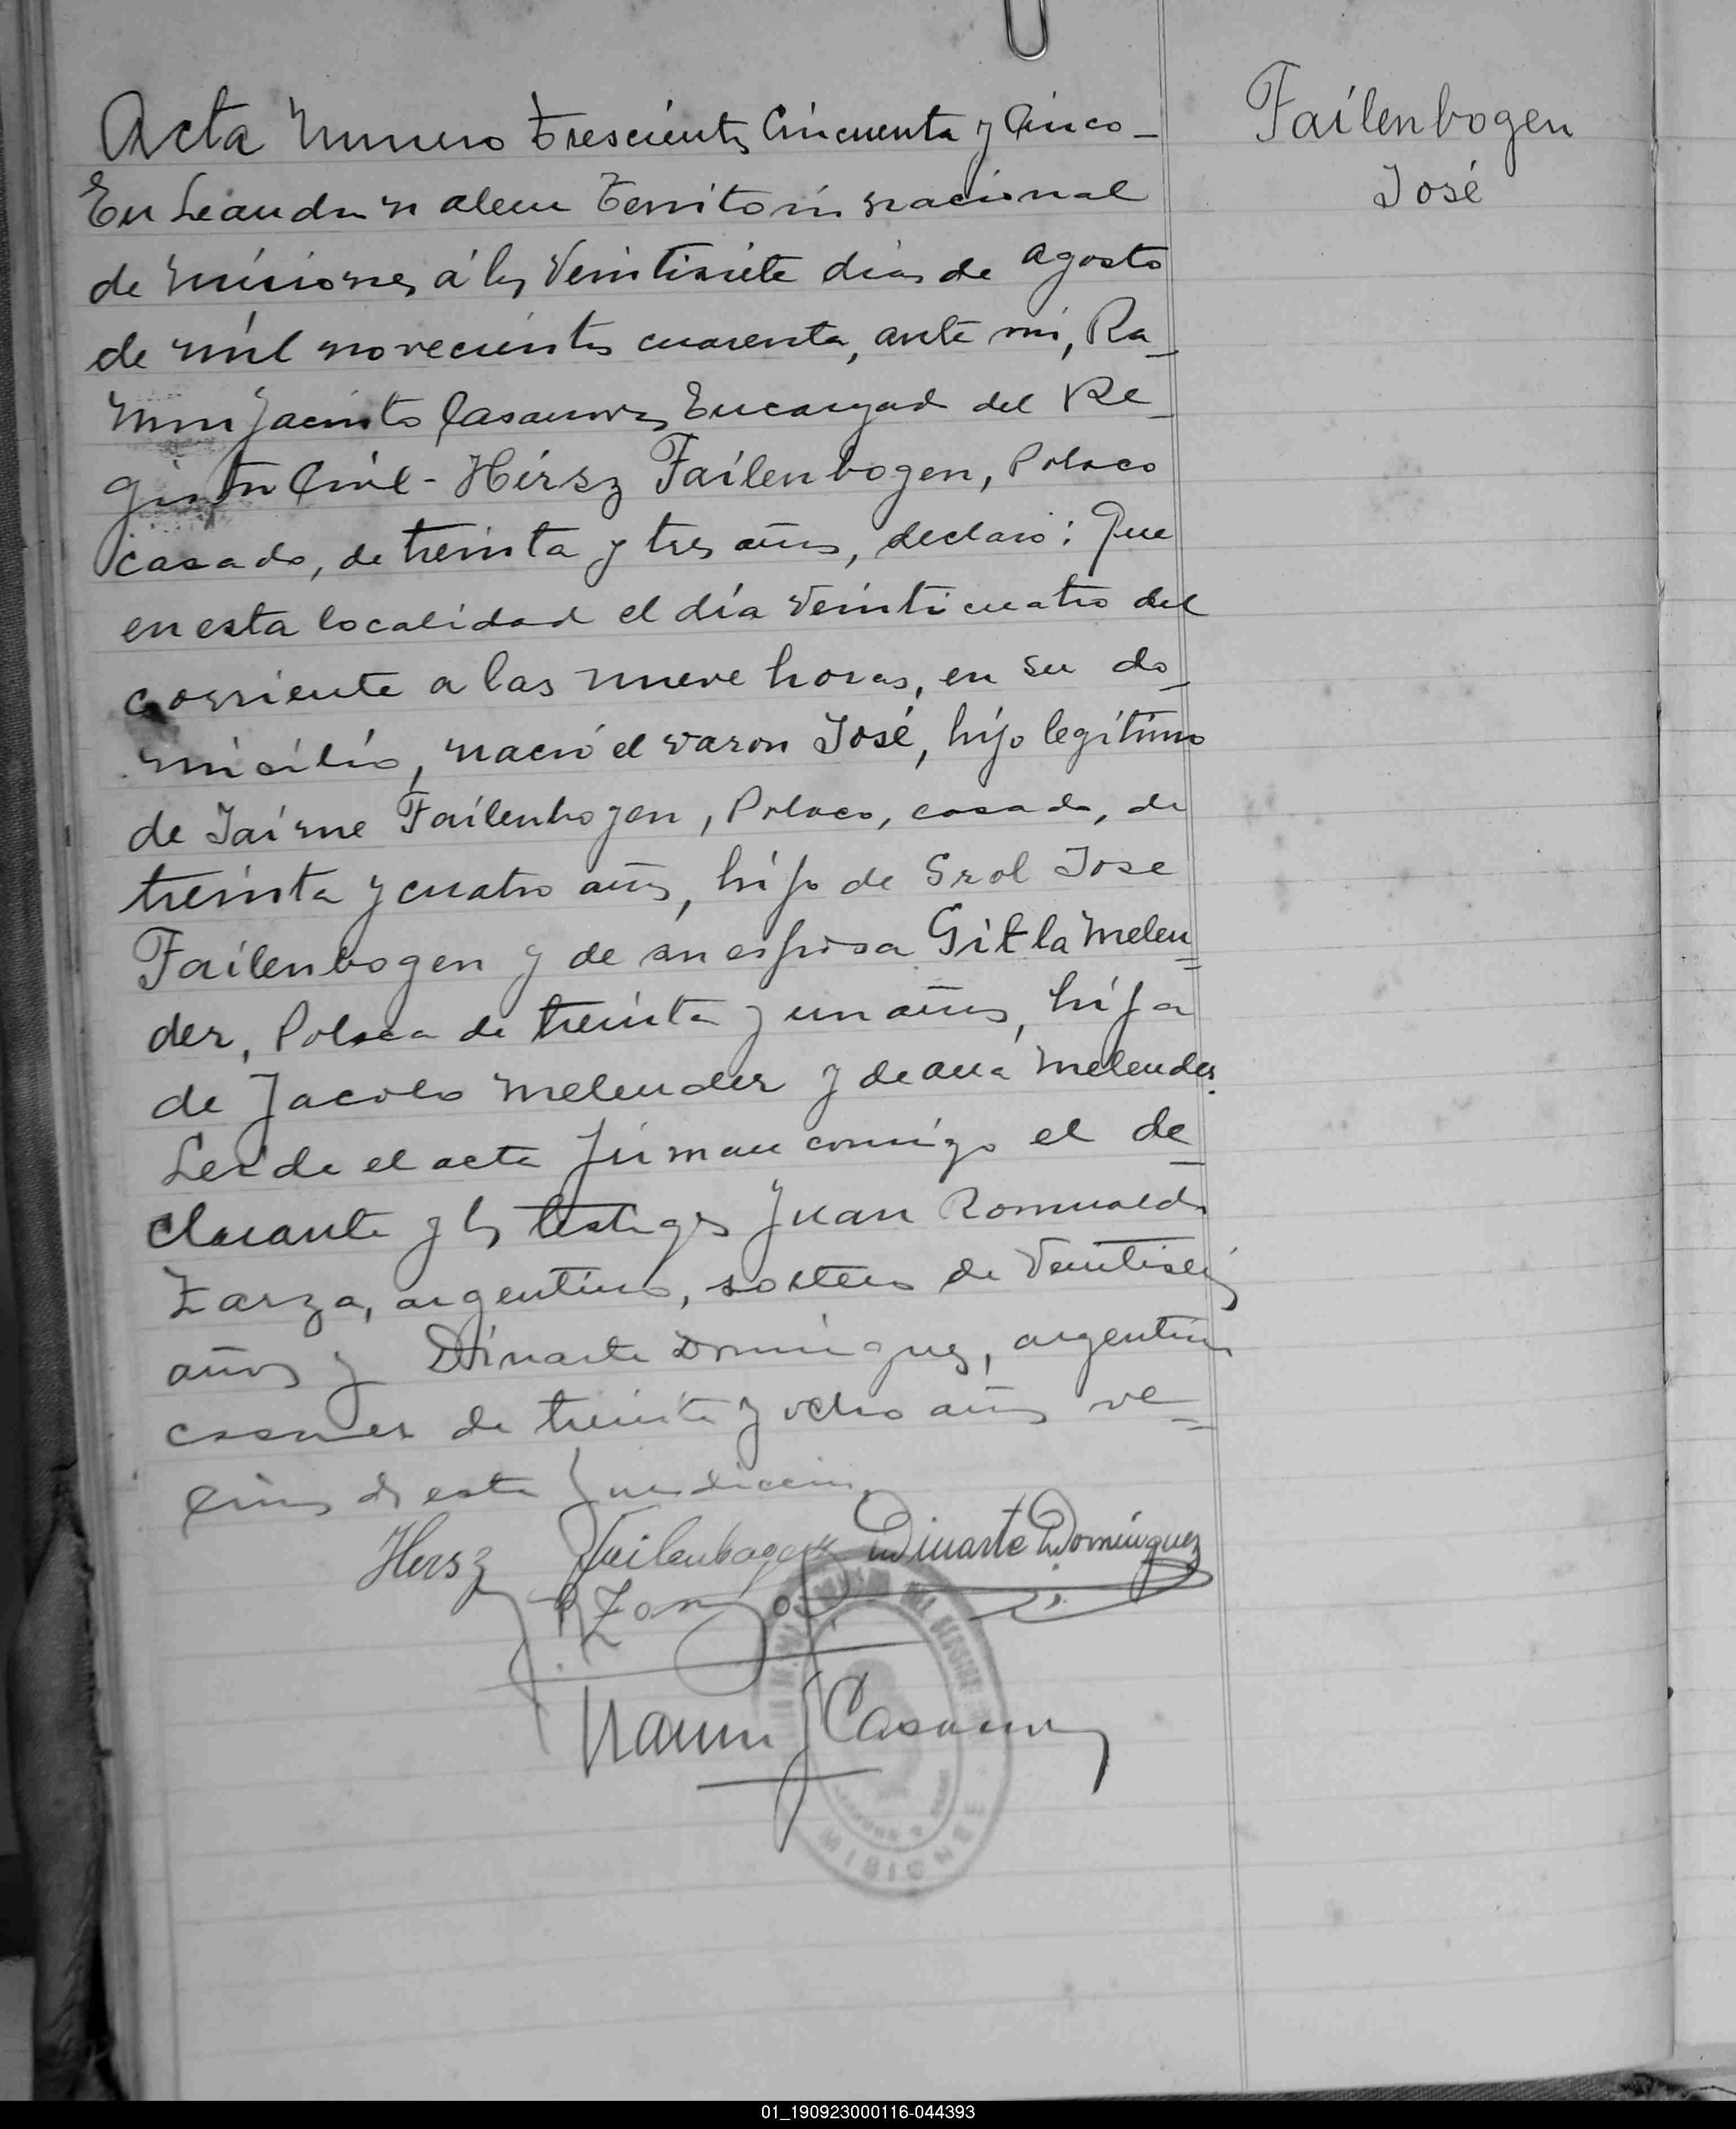 Failenbogen
José
Acta Numero Trescientos Cincuenta y Cinco_
En Leandro N Alem Territorio Nacional
de Misiones, á los Veintisiete dias de Agosto
de mil novecientos cuarenta, ante mi, Ra_
mon Jacinto Casanova Encargado del Re_
gistro Civil - Hersz Failenbogen, Polaco
casado, de treinta y tres años, declaró: Que
en esta localidad el día Veinticuatro del
corriente a las nueve horas, en su do_
micilio, nació el varon José, hijo legítimo
de Jaime Failenbogen, Polaco, casado, de
treinta y cuatro años, hijo de Srol Jose
Failenbogen y de su esposa Gitla Melen=
der, Polaca de treinta y un años, hija
de Jacobo Melender y de Ana Melender.
Leida el acta firman conmigo el de_
clarante y los testigos Juan Romualdo
Zarza, argentino, soltero de Veintiseis
años y Dinarte Dominguez, argentino
casado de treinta y ocho años ve=
cinos de esta Jurisdiccion.
Hersz Failenbogen Dinarte Domínguez
R Zarza
Ramon J Casanova
MISIONES
01_190923000116-044393